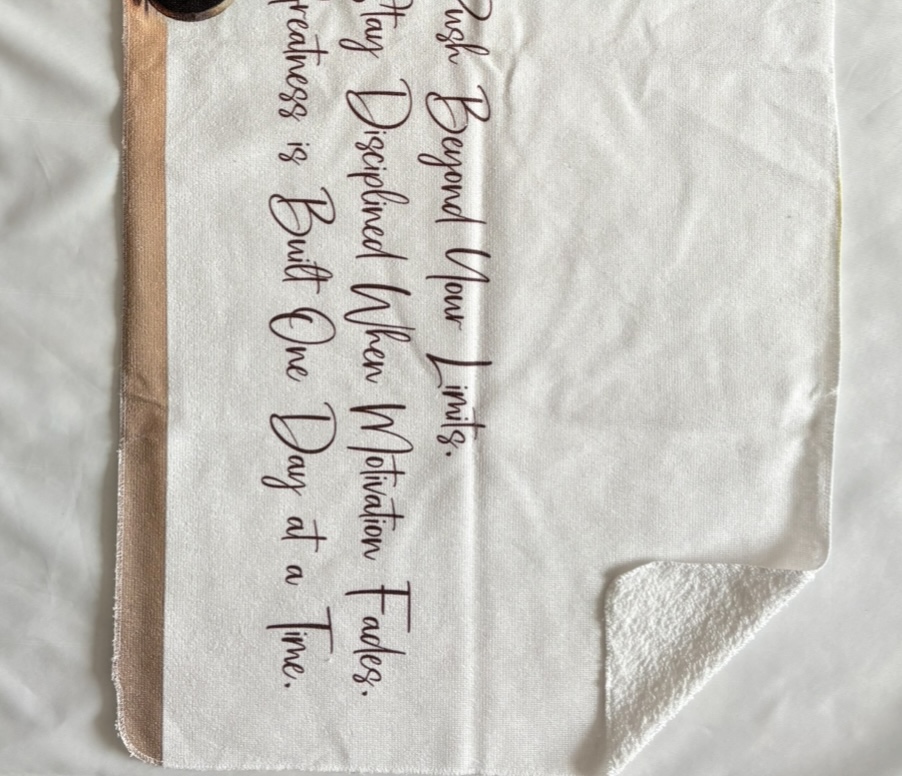 Push Beyond Your Limits.
Stay Disciplined When Motivation Fades.
Greatness is Built One Day at a Time.